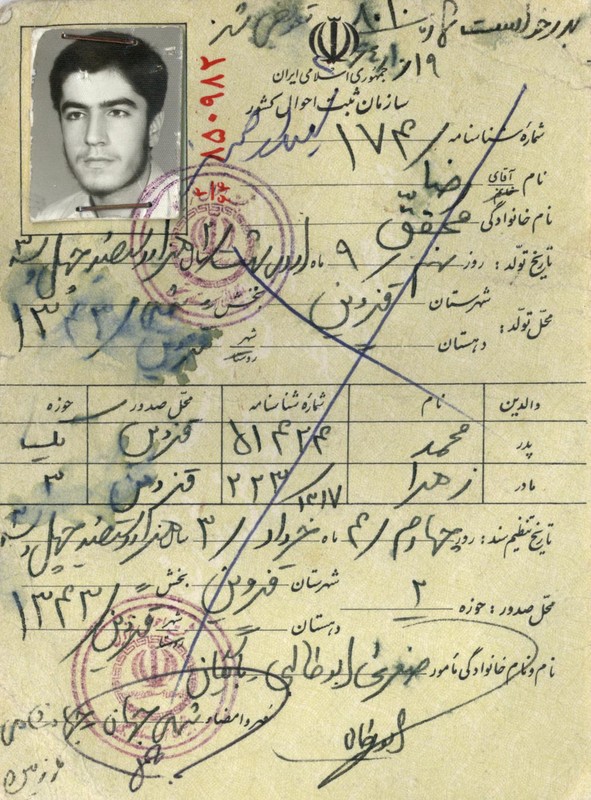 بدرخواست
تعویض شد
جمهوری اسلامی ایران
سازمان ثبت احوال کشور
۸۵۰۹۸۲
شماره شناسنامه ۱۷۴/
نام آقای خانم رضا
نام خانوادگی محقق
تاریخ تولد: روز نهم / ۹ ماه اردیبهشت / ۲ سال هزار و سیصد و چهل و سه
۱۳۴۳/
محل تولد: شهرستان قزوین بخش
دهستان شهر روستا قزوین
والدین نام شماره شناسنامه محل صدور حوزه
پدر محمد ۵۱۴۲۴ قزوین یک
مادر زهرا ۲۲۳ / ۱۳۱۷ قزوین ۳
تاریخ تنظیم سند: روز چهارم / ۴ ماه خرداد / ۳ سال هزار و سیصد و چهل و سه
۱۳۴۳/
محل صدور: حوزه ۲ شهرستان قزوین بخش
دهستان شهر قزوین
نام و نام خانوادگی مامور ابوطالبی
مهر و امضاء